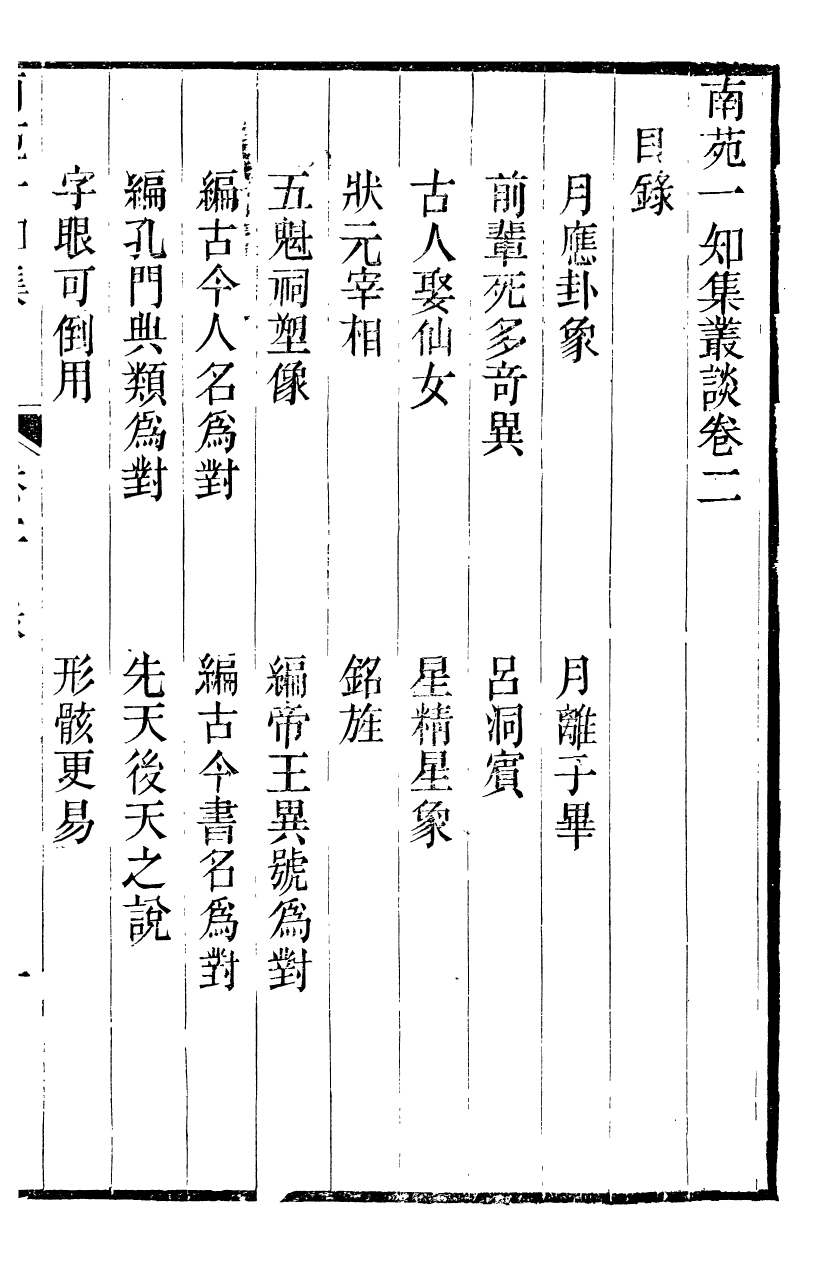 南苑一知集叢談卷二
目錄
月應卦象　月離于畢
前輩死多奇異　呂洞賓
古人娶仙女　星精星象
狀元宰相　銘旌
五魁祠塑像　編帝王異號爲對
編古今人名爲對　編古今書名爲對
編孔門典類爲對　先天後天之說
字眼可倒用　形骸更易